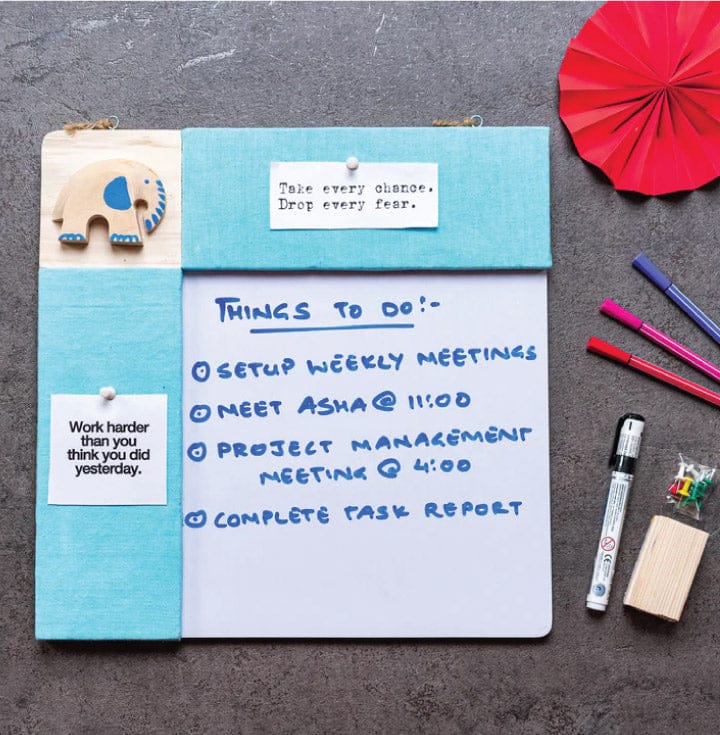 Take every chance.
Drop every fear.
THINGS TO DO:-
SETUP WEEKLY MEETINGS
MEET ASHA @ 11:00
PROJECT MANAGEMENT
MEETING @ 4:00
COMPLETE TASK REPORT
Work harder
than you
think you did
yesterday.